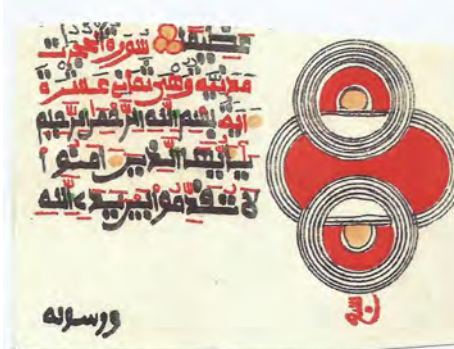 عَظِيماً سُورَةُ الحُجُرَت
مَدَنِيَّة وَهِيَ ثَمَانِي عَشرَة
ءايَة بِسمِ اللهِ الرَّحمَنِ الرَّحِيمِ
يَـأَيُّهَا الَّذِينَ ءَامَنُوا
لَا تُقَدِّمُوا بَينَ يَدَيِ اللهِ
ورسوله